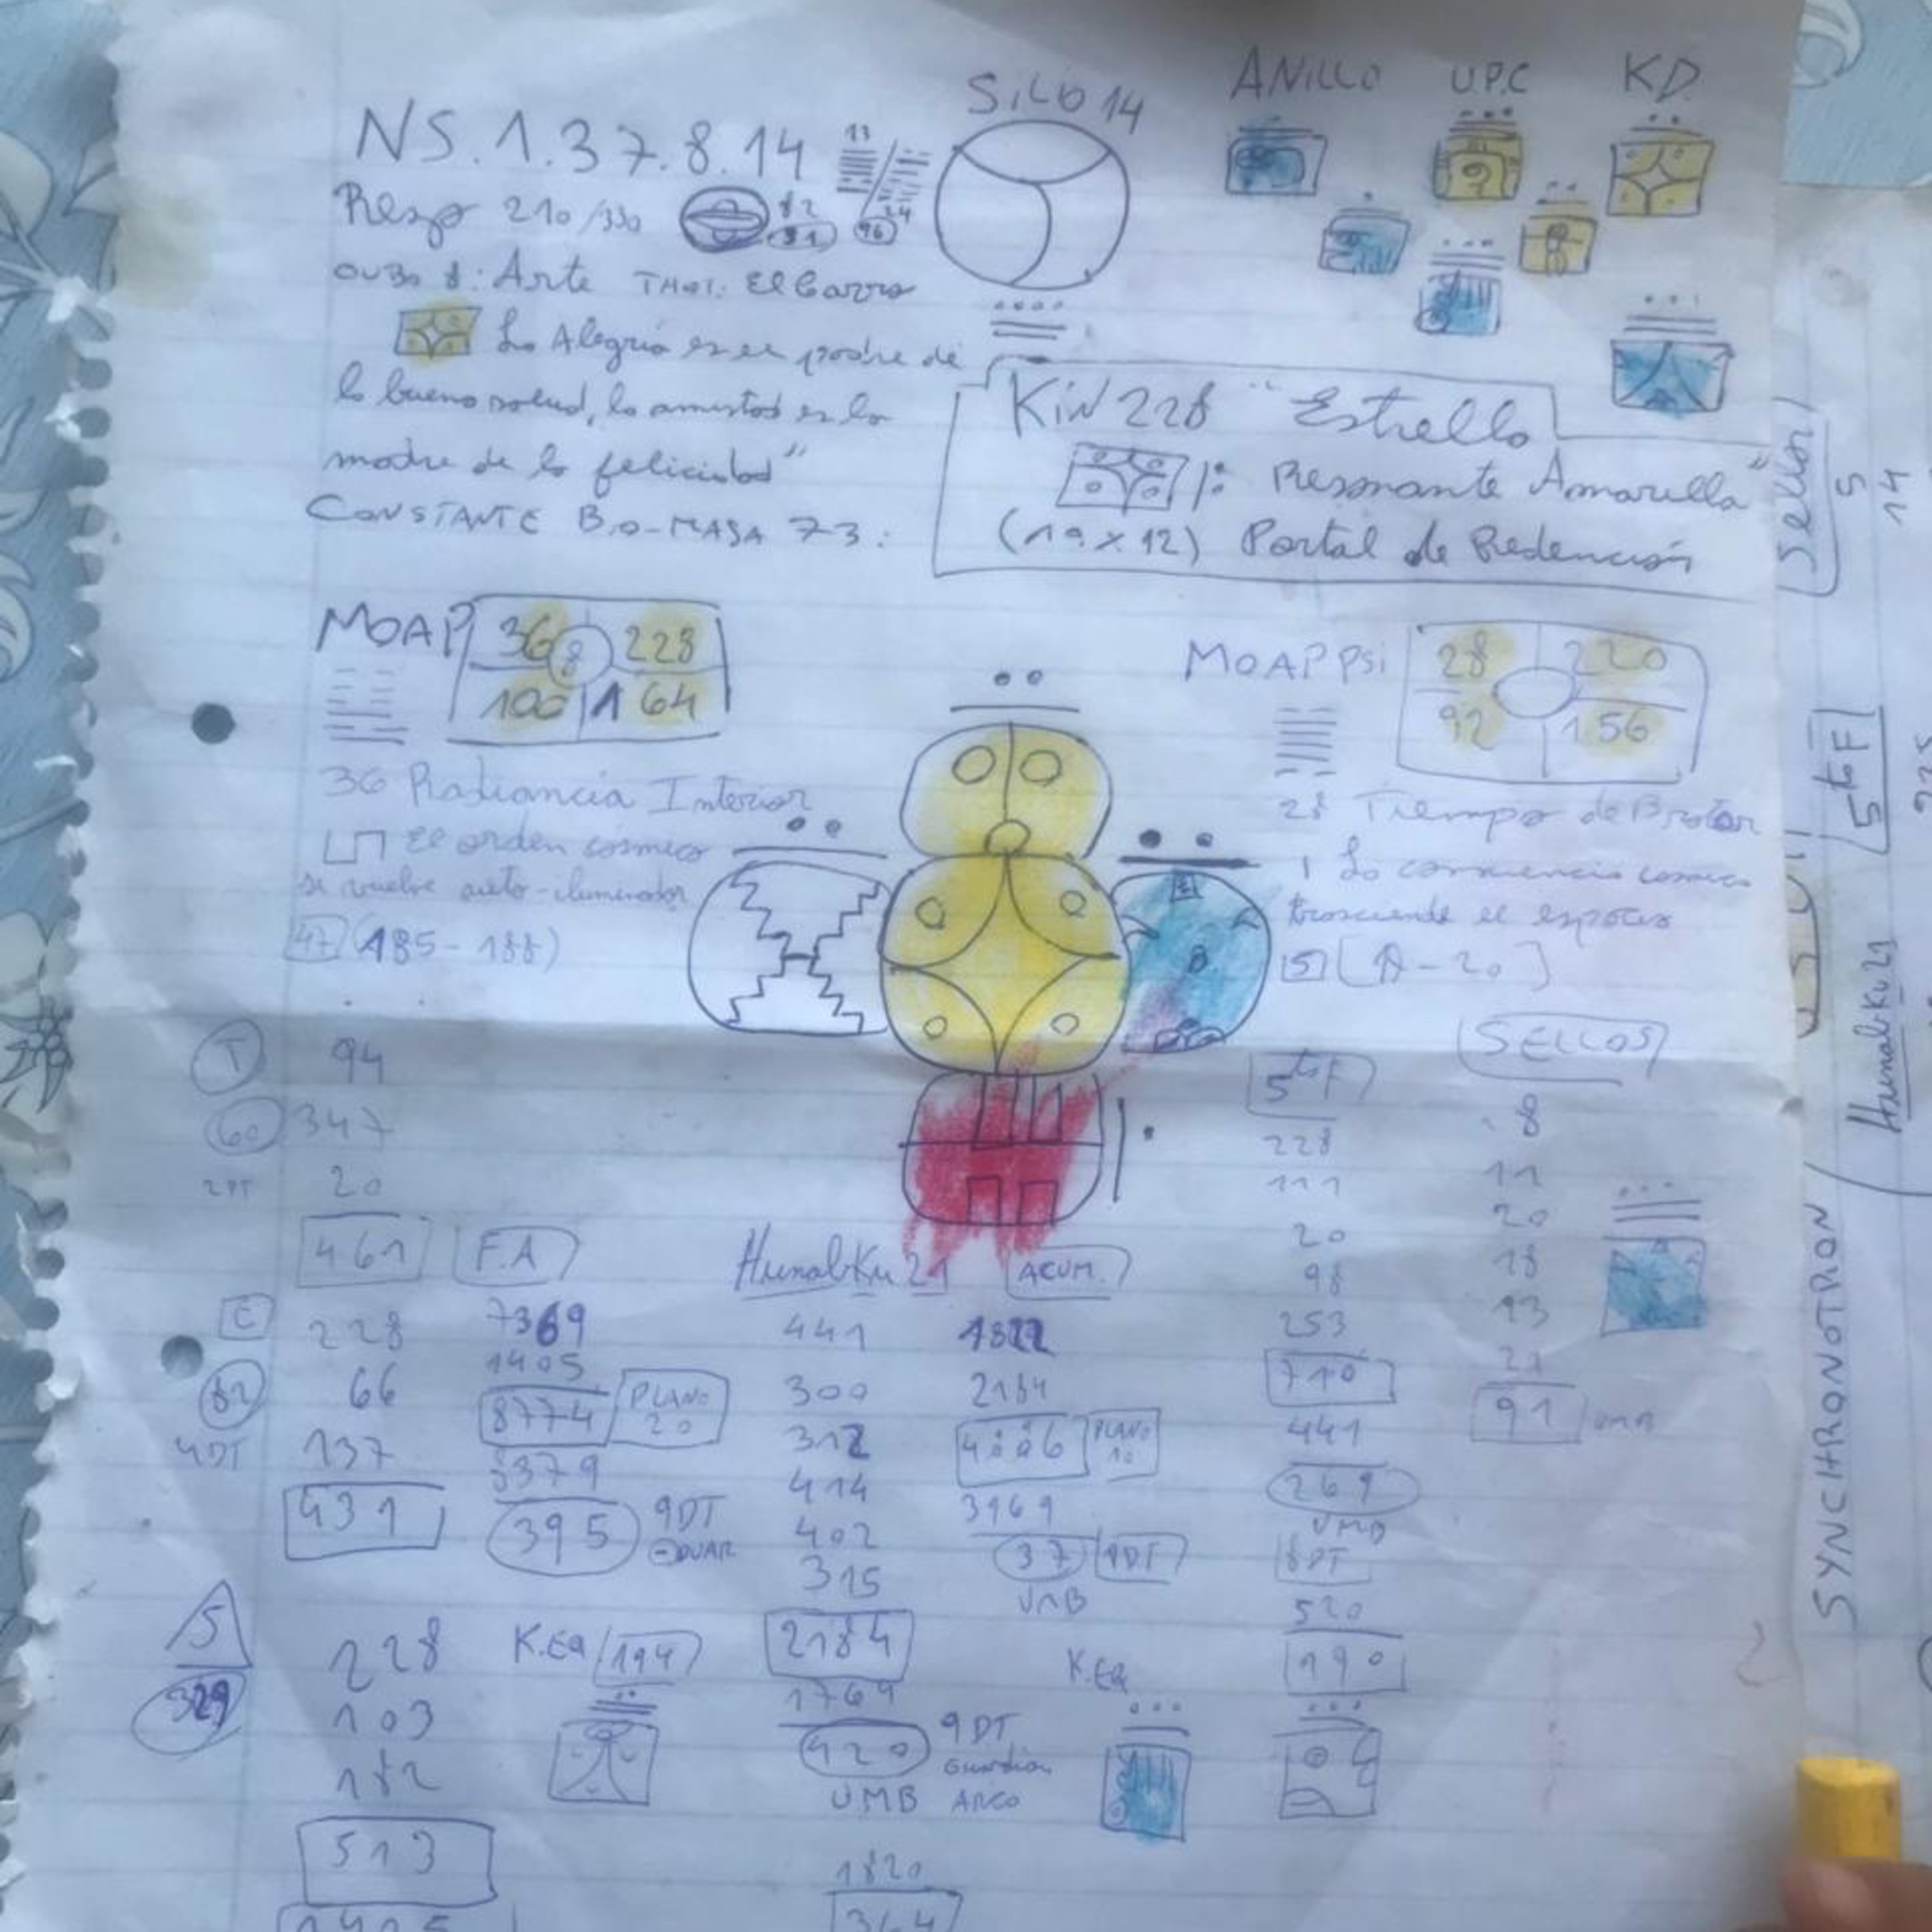 NS.1.37.8.14
13
24
96
SiLIO 14
ANILLO
UPC
KD
Resp 210/330
82
81
CUBO 8: Arte THOT: El Carro
La Alegría es el padre de
la buena salud, la amistad es la
madre de la felicidad"
CONSTANTE BIO-MASA 73:
KiN 228 "Estrella
Resonante Amarilla"
(19 x 12) Portal de Redención
MOAP
36 228
8
100 164
36 Radiancia Interior
El orden cósmico
se vuelve auto-iluminador
47 (185-188)
MOAP PSi
28 220
92 156
28 Tiempo de Brotar
La consciencia cósmica
trasciende el espacio
5
T 94
60 347
2DT 20
461
E 228
82 66
4DT 137
431
5
329
228
103
182
513
F.A
7369
1405
8774 PLANO 20
8379
395 9DT
K.EQ 194
HunabKu 21
441
300
312
414
402
315
2184
1764
420 9DT
UMB Guardian
ARCO
1820
364
ACUM.
1822
2184
4006 PLANO 10
3969
37 9DT
UMB
K.EQ
5to F
228
111
20
98
253
710
441
269
UMB
8DT
520
190
SELLOS
8
11
20
18
13
21
91 UMB
Sellos
5
14
5to F
225
HunabKu 21
SYNCHRONOTRON